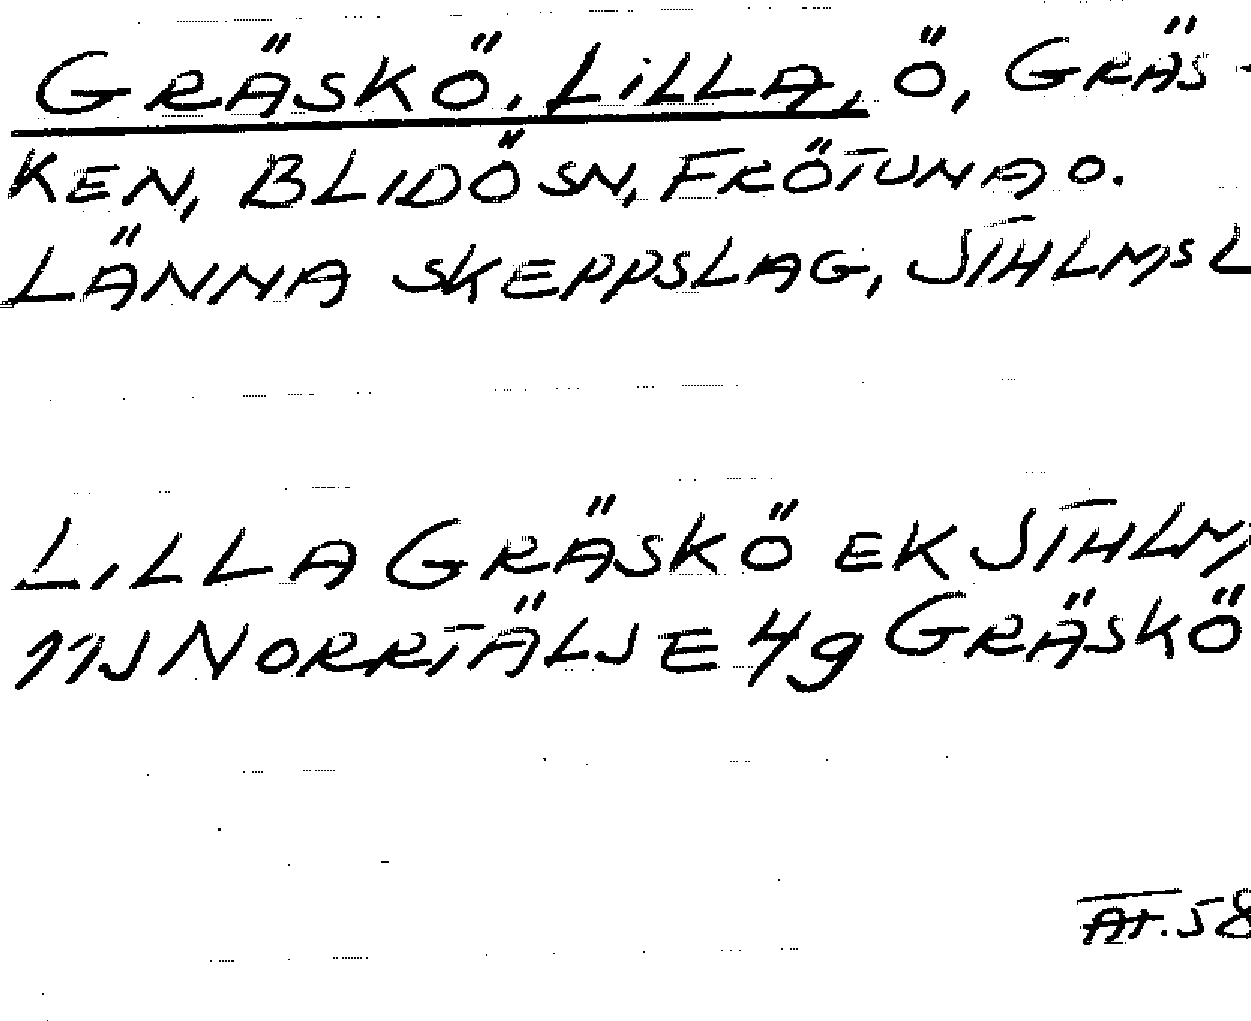 GRÄSKÖ, LILLA, Ö, GRÄS-
KEN, BLIDÖ SN, FRÖTUNA O.
LÄNNA SKEPPSLAG, STHLMS L
LILLA GRÄSKÖ EK STHLM
11J NORRTÄLJE 4g GRÄSKÖ
58